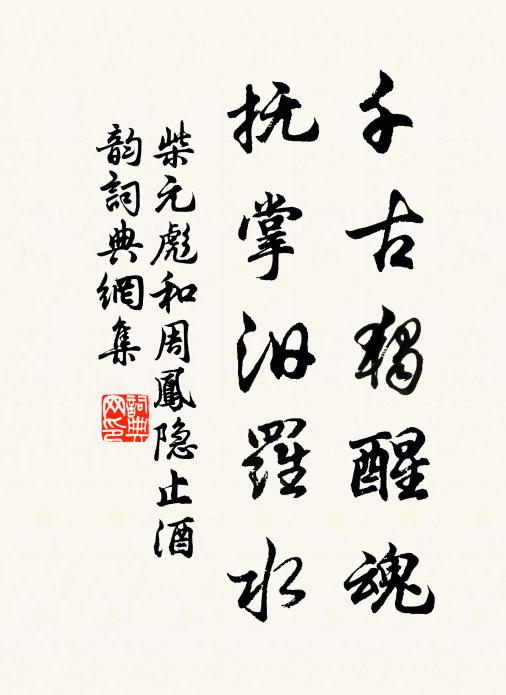 千古獨醒魂
抚掌汨羅水
柴元彪和周鳳隐止酒
韵詞典網集
詞典
网印